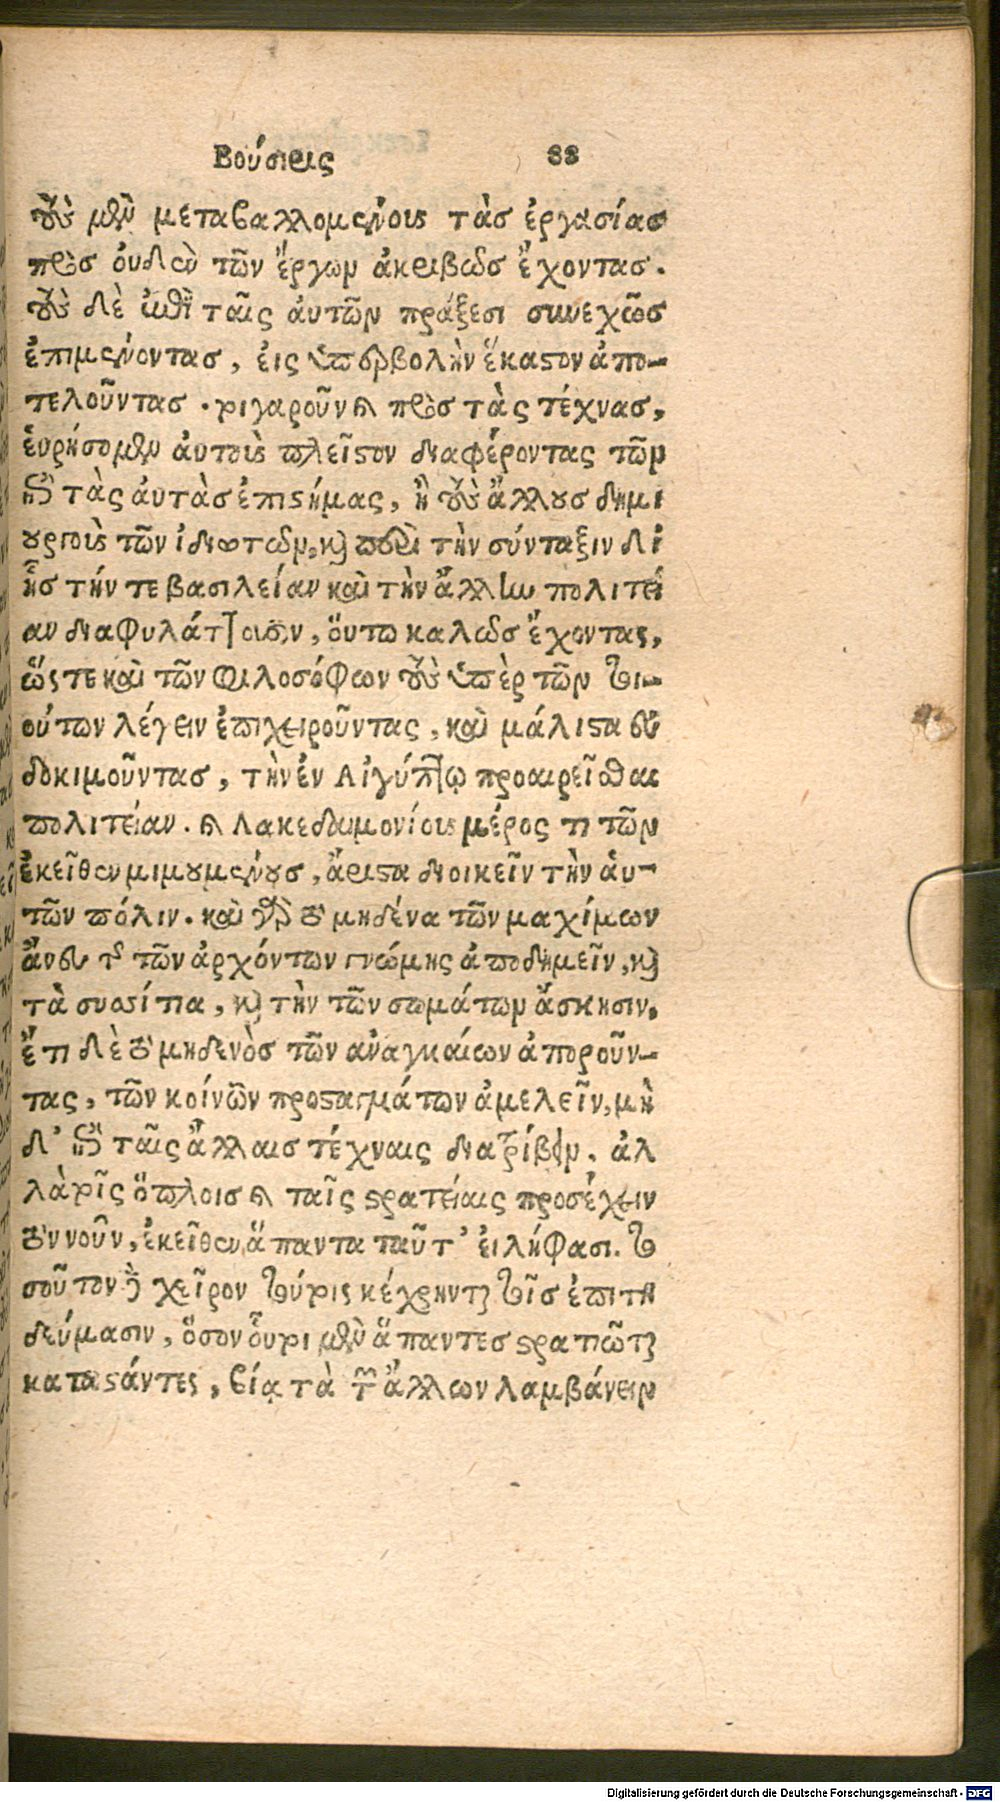 Βούσιρις 88
τοὺς μὲν μεταβαλλομένους τὰσ ἐργασίασ
πρὸσ οὐδὲν τῶν ἔργων ἀκριβῶσ ἔχοντασ.
τοὺς δὲ ἐπὶ ταῖς ἀυτῶν πράξεσι συνεχῶσ
ἐπιμένοντασ, ἐις ὑπερβολὴν ἕκαστον ἀπο-
τελοῦντασ. τοιγαροῦν καὶ πρὸσ τὰς τέχνασ,
ἑυρήσομεν ἀυτοὺς πλεῖστον διαφέροντας τῶν
περὶ τὰς ἀυτὰσ ἐπιστήμας, ἢ τοὺς ἄλλουσ δημι
ουργοὺς τῶν ἰδιωτῶν, καὶ πρὸς τὴν σύνταξιν δι
ἧσ τήν τε βασιλείαν καὶ τὴν ἄλλην πολιτεί
αν διαφυλάττουσιν, ὅυτω καλῶσ ἔχοντας,
ὥςτε καὶ τῶν φιλοσόφων τοὺς ὑπὲρ τῶν τοι-
ούτων λέγειν ἐπιχειροῦντας, καὶ μάλιστα ευ
δοκιμοῦντασ, τὴν ἐν Αἰγύπτῳ προαιρεῖσθαι
πολιτείαν. καὶ Λακεδαιμονίους μέρος τι τῶν
ἐκεῖθεν μιμουμένουσ, ἄριστα διοικεῖν τὴν ἁυ-
τῶν πόλιν. καὶ γὰρ τὸ μηδένα τῶν μαχίμων
ἄνευ τῆς τῶν ἀρχόντων γνώμης ἀποδημεῖν, καὶ
τὰ συσσίτια, καὶ τὴν τῶν σωμάτων ἄσκησιν,
ἔτι δὲ τὸ μηδενὸσ τῶν ἀναγκαίων ἀποροῦν-
τας, τῶν κοίνῶν προσταγμάτων ἀμελεῖν, μὴ
δ' ἐπὶ ταῖς ἄλλαισ τέχναις διατρίβειν, ἀλ
λὰ τοῖς ὅπλοισ καὶ ταῖς στρατείαις προσέχειν
τὸν νοῦν, ἐκεῖθεν ἅπαντα ταῦτ' ἐιλήφασι. το
σοῦτον δὲ χεῖρον τούτοις κέχρηνται τοῖσ ἐπιτη
δεύμασιν, ὅσον ὅυτοι μὲν ἅπαντεσ στρατιῶται
καταστάντες, βίᾳ τὰ τῶν ἄλλων λαμβάνειν
Digitalisierung gefördert durch die Deutsche Forschungsgemeinschaft - DFG